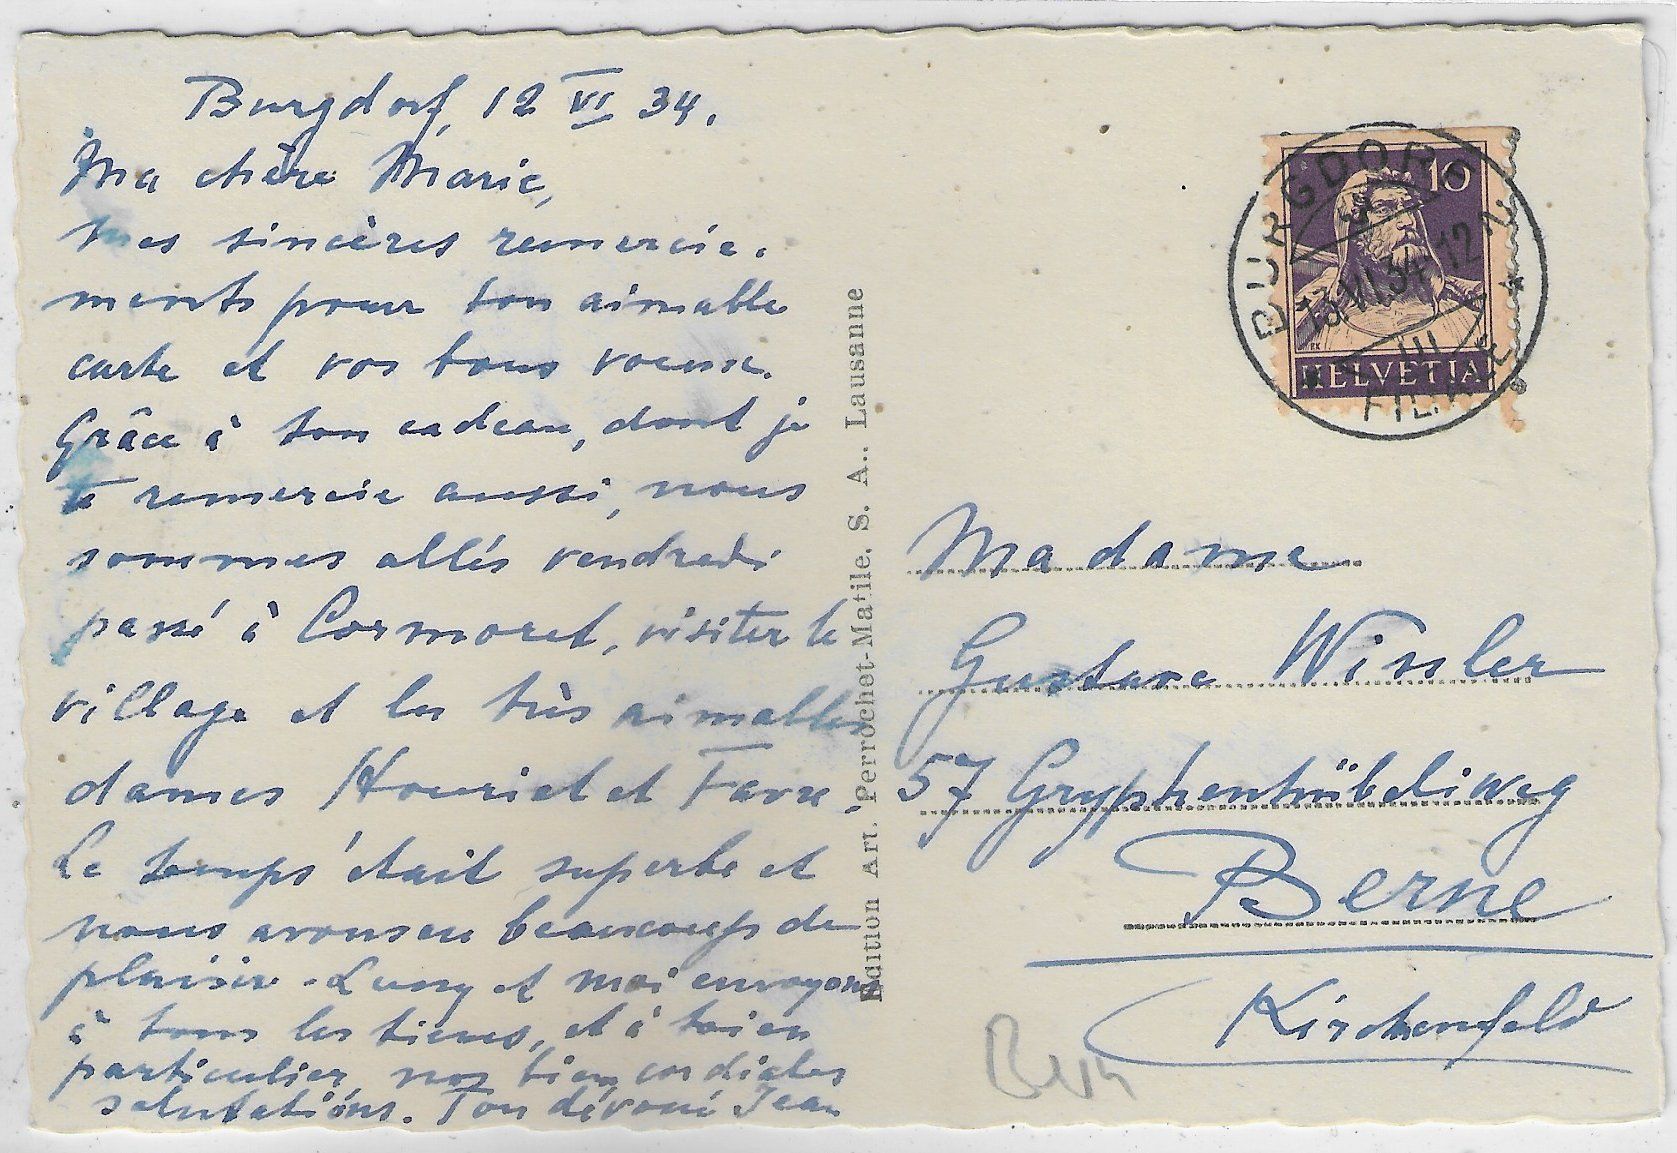 Burgdorf, 12 VI 34.
Ma chère Marie,
Mes sincères remercie-
ments pour ton aimable
carte et vos bons voeux.
Grâce à ton cadeau, dont je
te remercie aussi, nous
sommes allés vendredi
passé à Cormoret, visiter le
village et les très aimables
dames Houriet et Favre.
Le temps était superbe et
nous avons eu beaucoup de
plaisir - Lucy et moi envoyons
à tous les tiens, et à toi en
particulier, nos bien cordiales
salutations. Ton dévoué Jean
Edition Art. Perrochet-Matile, S. A., Lausanne
BURGDORF
10
13.VI.34-12
HELVETIA
Madame
Gustave Wissler
57 Gryphenhübeliweg
Berne
Kirchenfeld
Bern